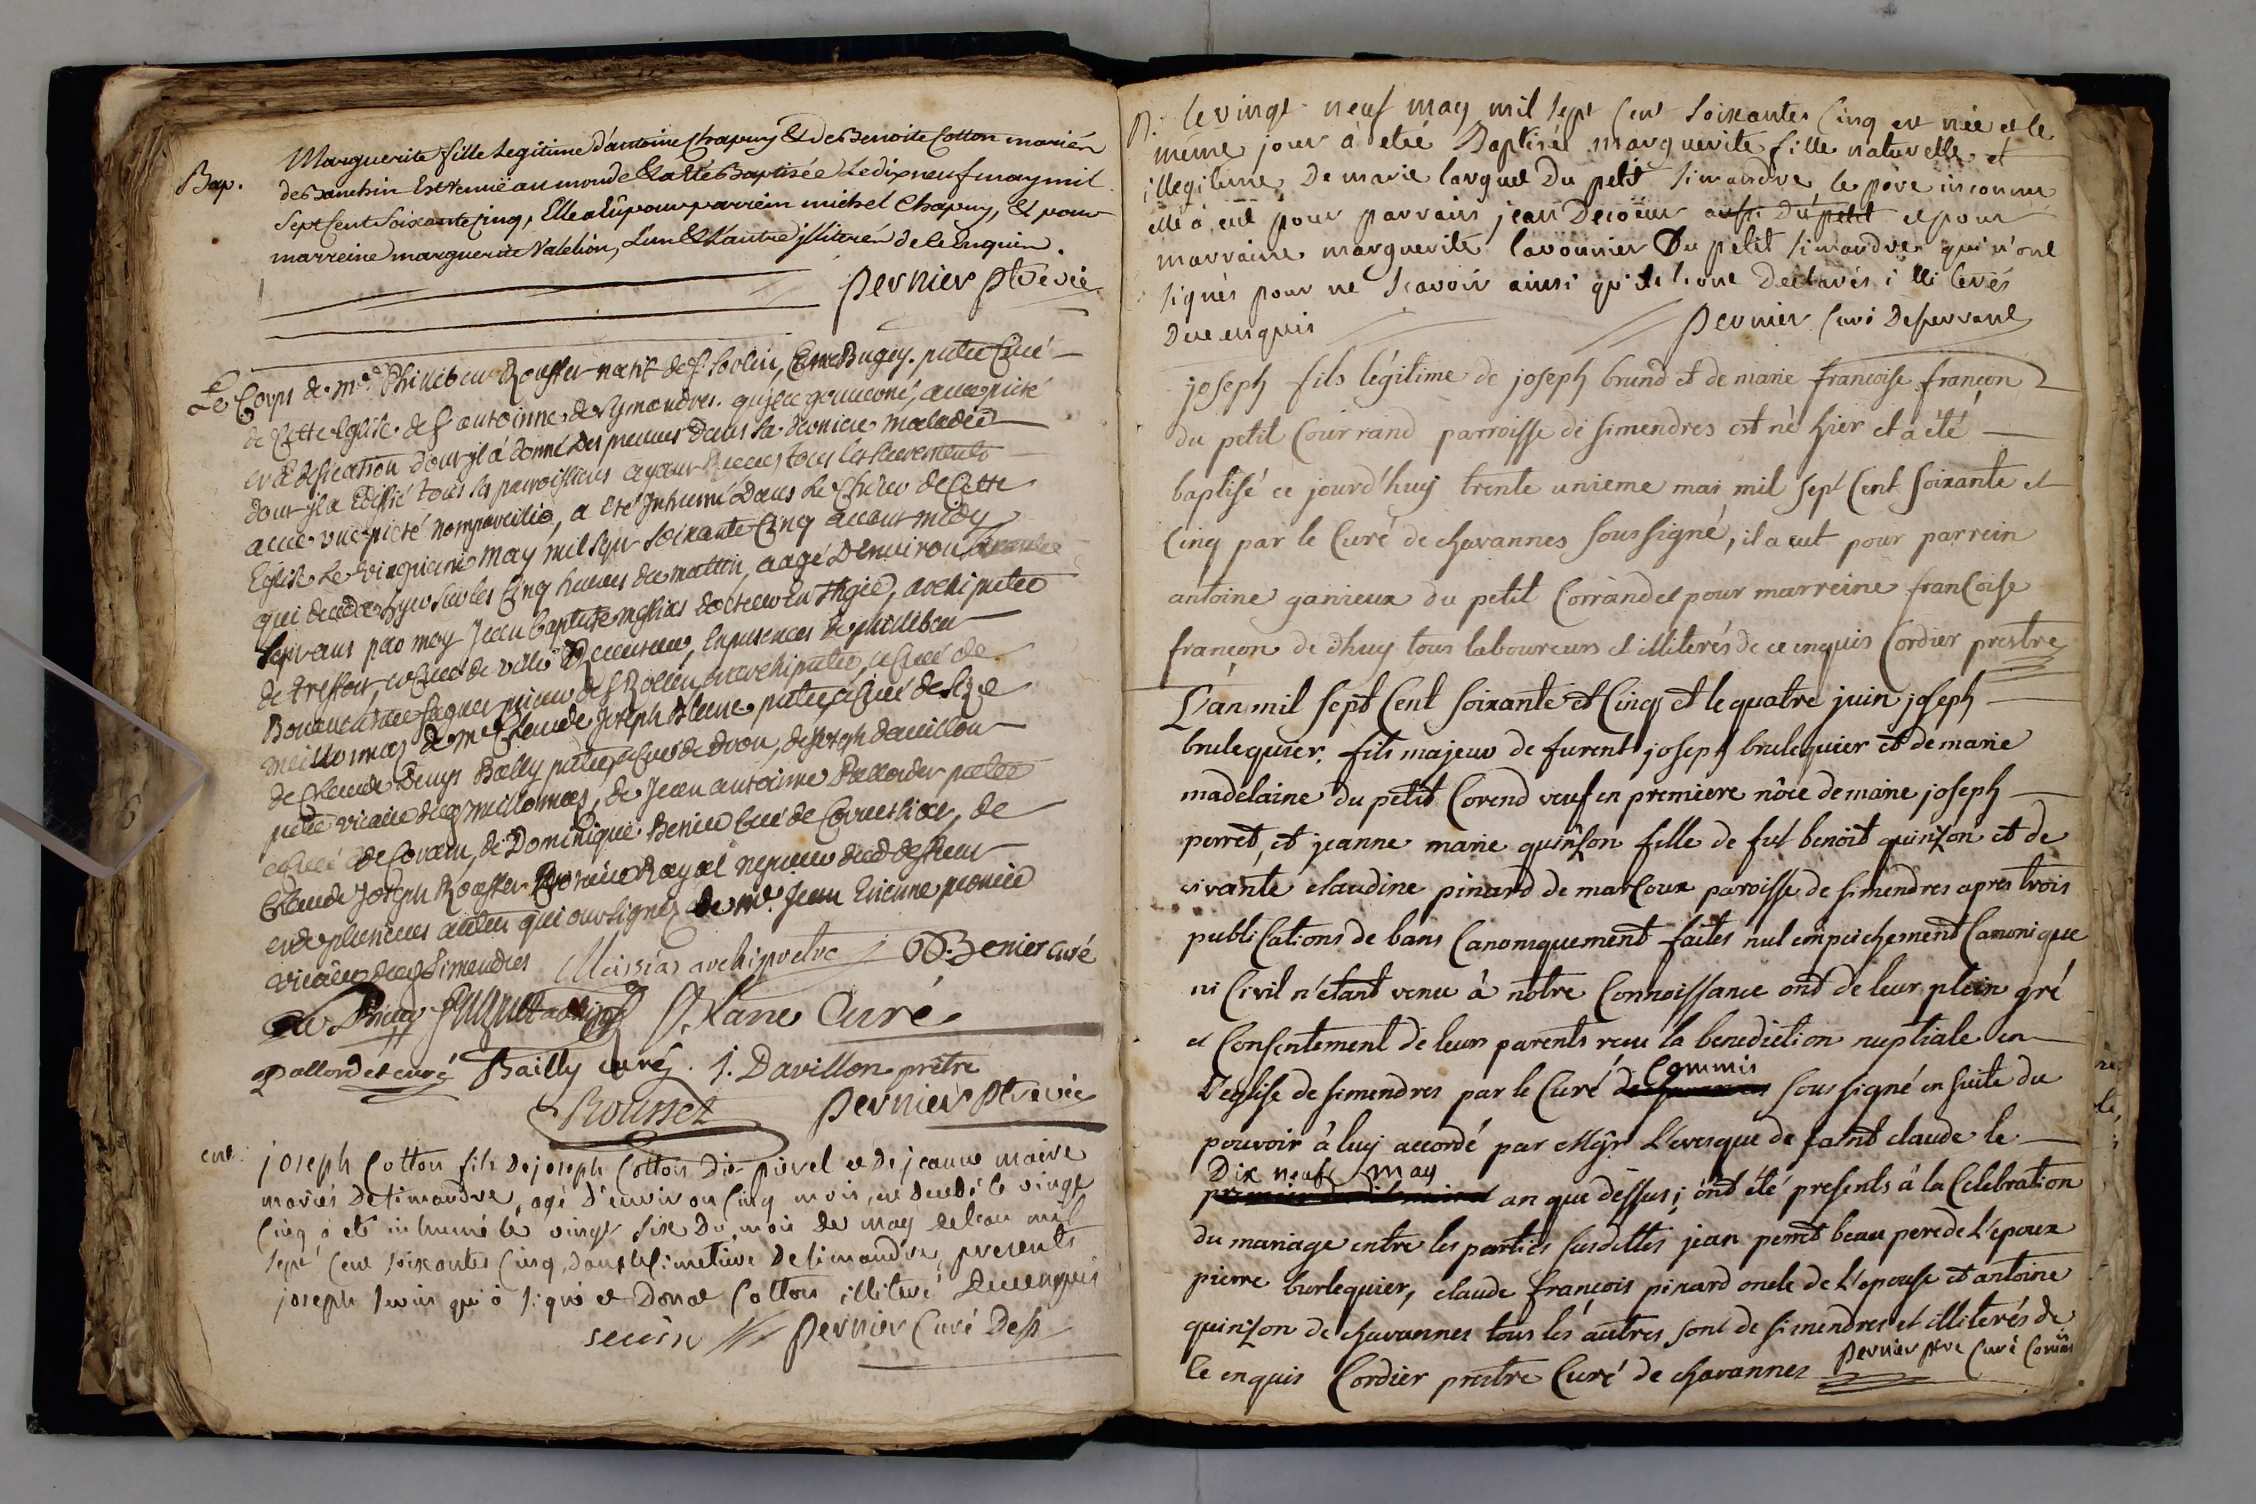 Bap. Marguerite fille Legitime d'antoine Chapuy & de Benoite Cotton mariés
de Banchin Est venüe au monde & a été Baptisée Le dix neuf may mil
Sept Cent Soixante Cinq, Elle a eû pour parrein michel Chapuy, & pour
marreine marguerite Valelion, L'un & L'autre jlliterés de ce Enquis.
pernier ptre vic
Le Corps de mre Philibert Rousset natif de St Sorlin, En Bugey. pretre Curé
de Cette Eglise de St antoinne de Symandres. qu'il a gouverné, avec pieté
et Edification dont jl a donné Des preuves Dans Sa derniere maladie
dont jl a Edifié tous Ses paroissiens ayant Receus tous les Sacrements
avec une pieté nompareille, a été Inhumé Dans Le Chœur de Cette
Eglise Le vingtieme May mil Sept Soixante Cinq avant midy
qui deceda hyer Sur les Cinq heures du mattin, aagé D'environ
Sepvans par moy Jean baptiste messias docteur En Thgie, archipretre
de treffort, et Curé de ville Reversure, En presences de philibert
Bonaventure fuguet prieur de St archipretre, et Curé de
meillonnas de mre Claude Joseph Blanc pretre, et Curé de Size
de Claude Denys Bailly pretre, et Curé de drom, de joseph davillon
pretre vicaire de meillonnas, de Jean antoinne Pallordet pretre
et Curé de Coram, de Dominique Benier Curé de Corveissiat, de
Claude Joseph Rousset Notaire Royal nepveu dud deffunt
et de plusieurs autres qui ont Signez de mre Jean Etienne pernier
vicaire de Simandres Messias archipretre D Benier curé
prieur fuguet archip J. Blanc Curé
Pallordet curé Bailly curé. J. Davillon prêtre
Rousset pernier ptre vic
ent. joseph Cotton fils de joseph Cotton dit pivel et de jeanne maire
mariés de simandre, agé d'environ Cinq mois, est decedé le vingt
Cinq a eté inhumé le vingt Six du mois de may de l'an mil
Sept Cent Soixantes Cinq, dans le Cimetiere de Simandre, presents
joseph secuin qui a signé et Donat Cotton illiteré De ce enquis
secuin pernier Curé Des
B. le vingt neuf may mil Sept Cent Soixantes Cinq est née et le
même jour à eteé Baptisée marguerite fille naturelle et
illegitime De marie larguel Du petit Simandre le pere inconnu
elle à eut pour parrain jean Decoeur aussi Du petit et pour
marraine marguerite lavounier Du petit Simandre qui n'ont
signés pour ne Scavoir ainsi qu'ils l'ont Declarés illiterés
De ce enquis pernier Curé Desservant
joseph fils légitime de joseph brund et de marie francoise françon
du petit Courrand parroisse de simendres est né hier et a été
baptisé ce jourd'huy trente unieme mai mil sept Cent soixante et
Cinq par le Curé de chavannes soussigné, il a eut pour parrein
antoine ganieux du petit Corrand et pour marreine francoise
françon de dhuy tous laboureurs et illiterés de ce enquis Cordier prestre
L'an mil sept Cent soixante et Cinq et le quatre juin joseph
brulequier. fils majeur de furent joseph brulequier et de marie
madelaine du petit Corend veuf en premiere nôce de marie joseph
perret, et jeanne marie quinson fille de fut benoit quinson et de
vivante claudine pinard de marcoux paroisse de simendres apres trois
publications de bans Canoniquement faites nul empeichement Canonique
ni Civil n'étant venu à notre Connoissance ont de leur plein gré
et Consentement de leurs parents recu la benediction nuptiale en
L'eglise de simendres par le Curé Commis soussigné en suite du
pouvoir à luy accordé par Mgr L'evesque de saint claude le
Dix neuf may an que dessus; ont été presents à la Celebration
du mariage entre les parties susdittes jean perret beau pere de L'epoux
pierre burlequier, claude françois pinard oncle de L'epouse et antoine
quinson de chavannes tous les autres sont de simendres et illiterés de
ce enquis Cordier prestre Curé de chavannes pernier ptre Curé Comis